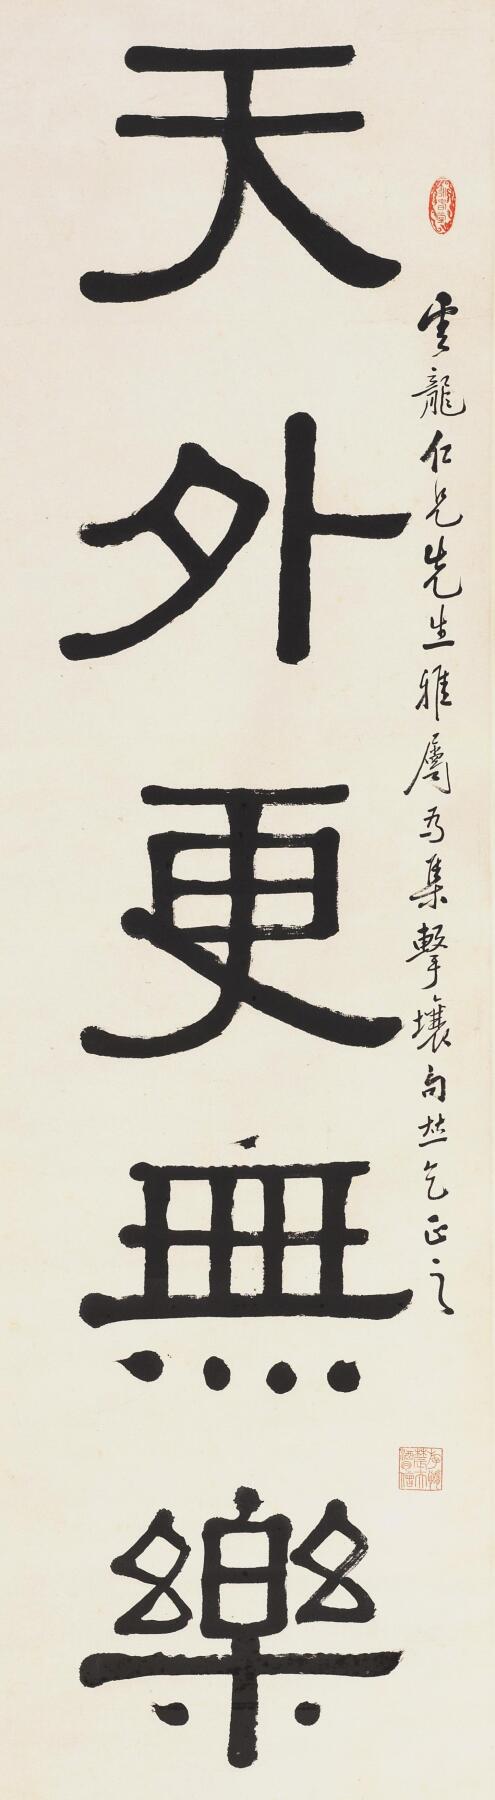 雲龍仁兄先生雅屬為集擊壤句並乞正之
天外更無樂